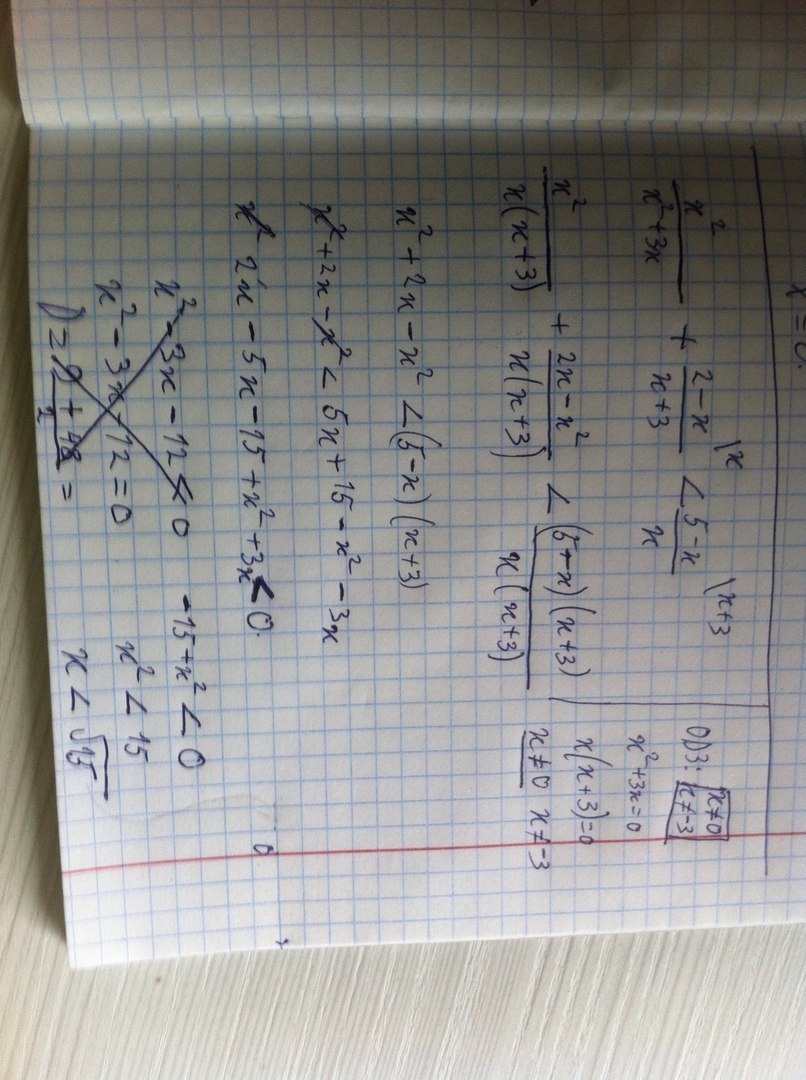 x = 0.
x²/(x²+3x) + (2-x)/(x+3) \x < (5-x)/x \x+3
ОДЗ: x≠0 x≠-3
x²+3x=0
x(x+3)=0
x≠0 x≠-3
x²/(x(x+3)) + (2x-x²)/(x(x+3)) < (5-x)(x+3)/(x(x+3))
x²+2x-x² < (5-x)(x+3)
x²+2x-x² < 5x+15-x²-3x
x² 2x-5x-15+x²+3x < 0.
x²-3x-12 < 0
x²-3x-12=0
D=9+48=
-15+x² < 0
x² < 15
x < √15